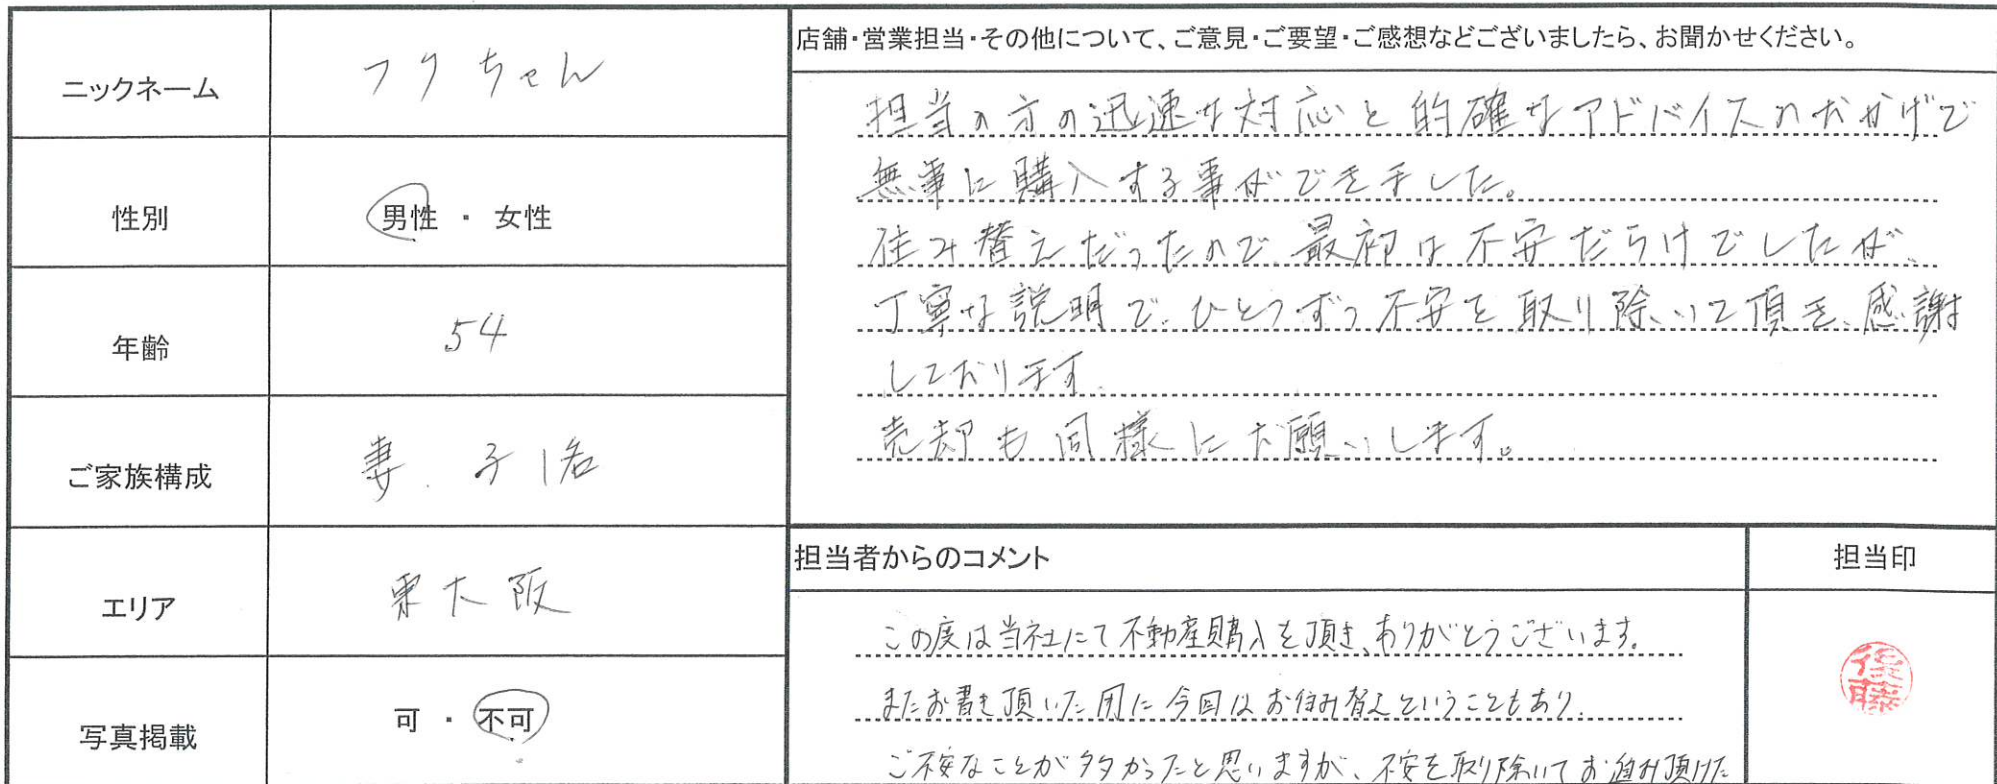 ニックネーム
フクちゃん
性別
男性 ・ 女性
年齢
54
ご家族構成
妻. 子1名
エリア
東大阪
写真掲載
可 ・ 不可
店舗・営業担当・その他について、ご意見・ご要望・ご感想などございましたら、お聞かせください。
担当の方の迅速な対応と的確なアドバイスのおかげで
無事に購入する事ができました。
住み替えだったので、最初は不安だらけでしたが、
丁寧な説明で、ひとつずつ不安を取り除いて頂き、感謝
しております.
売却も同様にお願いします。
担当者からのコメント
この度は当社にて不動産購入を頂き、ありがとうございます。
またお書き頂いた用に今回はお住み替えということもあり.
ご不安なことが多かったと思いますが、不安を取り除いてお進み頂けた
担当印
後藤